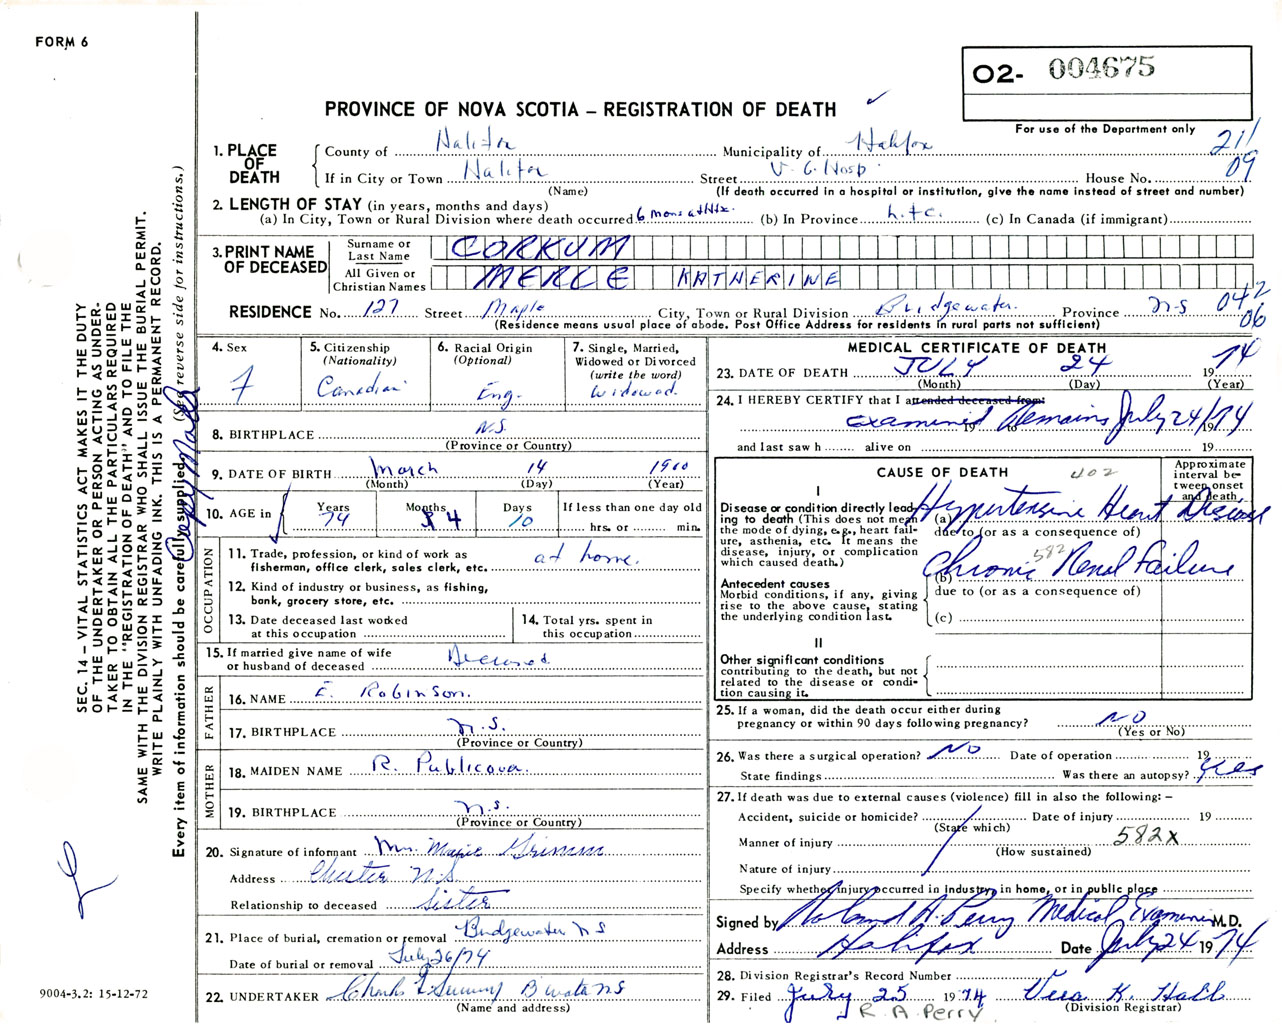 FORM 6
O2- 004675
PROVINCE OF NOVA SCOTIA – REGISTRATION OF DEATH
For use of the Department only
211
09
1. PLACE OF DEATH
County of Halifax Municipality of Halifax
If in City or Town Halifax Street V. G. Hosp. House No.
(Name) (If death occurred in a hospital or institution, give the name instead of street and number)
2. LENGTH OF STAY (in years, months and days)
(a) In City, Town or Rural Division where death occurred 6 mons at Hfx. (b) In Province Life. (c) In Canada (if immigrant)
3. PRINT NAME OF DECEASED
Surname or Last Name CORKUM
All Given or Christian Names MERLE KATHERINE
RESIDENCE No. 127 Street Maple City, Town or Rural Division Bridgewater. Province N-S
042
06
(Residence means usual place of abode. Post Office Address for residents in rural parts not sufficient)
4. Sex F
5. Citizenship (Nationality) Canadian
6. Racial Origin (Optional) Eng.
7. Single, Married, Widowed or Divorced (write the word) Widowed.
8. BIRTHPLACE N.S.
(Province or Country)
9. DATE OF BIRTH March 14 1900
(Month) (Day) (Year)
10. AGE in Years 74 Months 4 Days 10 If less than one day old hrs. or min.
OCCUPATION
11. Trade, profession, or kind of work as fisherman, office clerk, sales clerk, etc. at home.
12. Kind of industry or business, as fishing, bank, grocery store, etc.
13. Date deceased last worked at this occupation
14. Total yrs. spent in this occupation
15. If married give name of wife or husband of deceased Deceased
FATHER
16. NAME E. Robinson.
17. BIRTHPLACE N.S.
(Province or Country)
MOTHER
18. MAIDEN NAME R. Publicover.
19. BIRTHPLACE N.S.
(Province or Country)
20. Signature of informant Mrs. Grimm
Address Chester N.S
Relationship to deceased Sister
21. Place of burial, cremation or removal Bridgewater NS
Date of burial or removal July 26/74
22. UNDERTAKER
(Name and address)
MEDICAL CERTIFICATE OF DEATH
23. DATE OF DEATH JULY 24 1974
(Month) (Day) (Year)
24. I HEREBY CERTIFY that I attended deceased from:
examined Remains July 24/74
19 to 19
and last saw h alive on 19
CAUSE OF DEATH 402
Approximate interval between onset and death
I
Disease or condition directly leading to death (This does not mean the mode of dying, e.g., heart failure, asthenia, etc. It means the disease, injury, or complication which caused death.)
(a) Hypertensive Heart Disease
due to (or as a consequence of)
582
(b) Chronic Renal Failure
Antecedent causes
Morbid conditions, if any, giving rise to the above cause, stating the underlying condition last.
due to (or as a consequence of)
(c)
II
Other significant conditions contributing to the death, but not related to the disease or condition causing it.
25. If a woman, did the death occur either during pregnancy or within 90 days following pregnancy? NO
(Yes or No)
26. Was there a surgical operation? NO Date of operation 19
State findings Was there an autopsy? Yes
27. If death was due to external causes (violence) fill in also the following: –
Accident, suicide or homicide? Date of injury 19
(State which)
Manner of injury 582X
(How sustained)
Nature of injury
Specify whether injury occurred in industry, in home, or in public place
Signed by Roland A. Perry Medical Examiner M.D.
Address Halifax Date July 24 1974
28. Division Registrar's Record Number
29. Filed July 25 1974 Vera K. Hall
(Division Registrar)
R. A. Perry
SEC. 14 – VITAL STATISTICS ACT MAKES IT THE DUTY
OF THE UNDERTAKER OR PERSON ACTING AS UNDER-
TAKER TO OBTAIN ALL THE PARTICULARS REQUIRED
IN THE "REGISTRATION OF DEATH" AND TO FILE THE
SAME WITH THE DIVISION REGISTRAR WHO SHALL ISSUE THE BURIAL PERMIT.
WRITE PLAINLY WITH UNFADING INK. THIS IS A PERMANENT RECORD.
Every item of information should be carefully supplied. (See reverse side for instructions.)
Copy Mailed
9004-3.2: 15-12-72